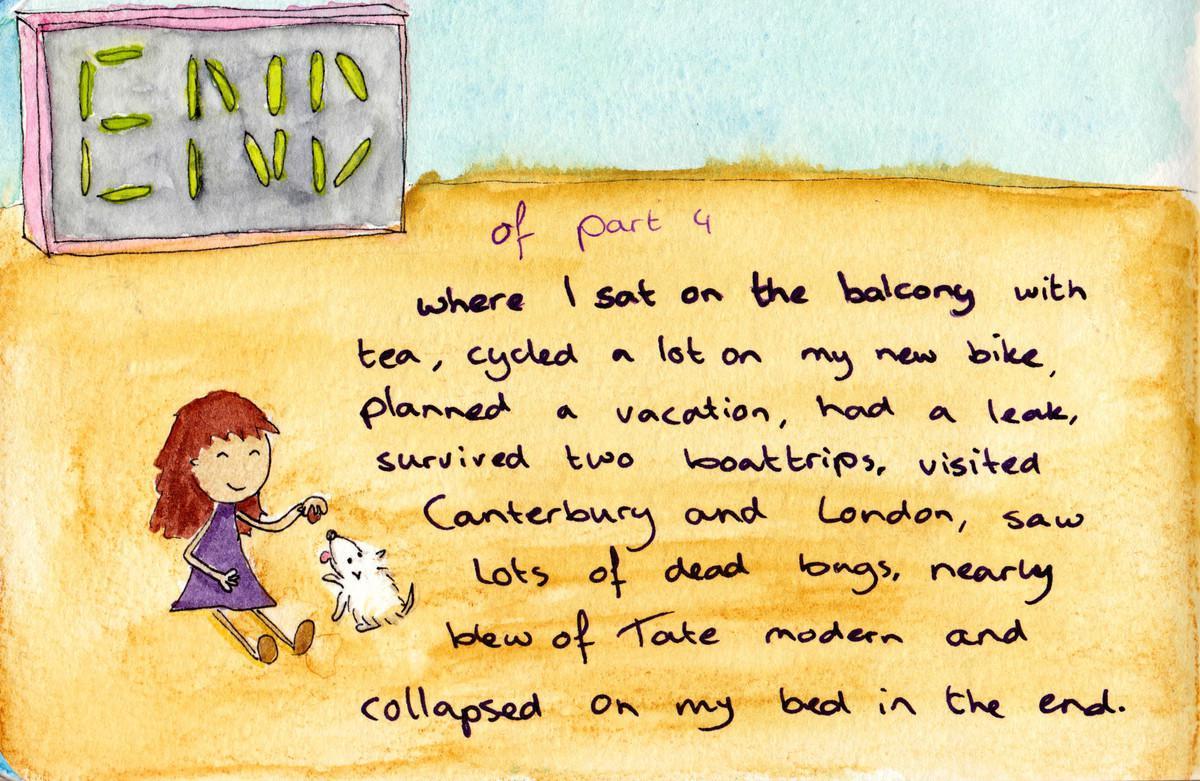 END
of part 4
where I sat on the balcony with
tea, cycled a lot on my new bike,
planned a vacation, had a leak,
survived two boattrips, visited
Canterbury and London, saw
lots of dead bugs, nearly
blew of Tate modern and
collapsed on my bed in the end.